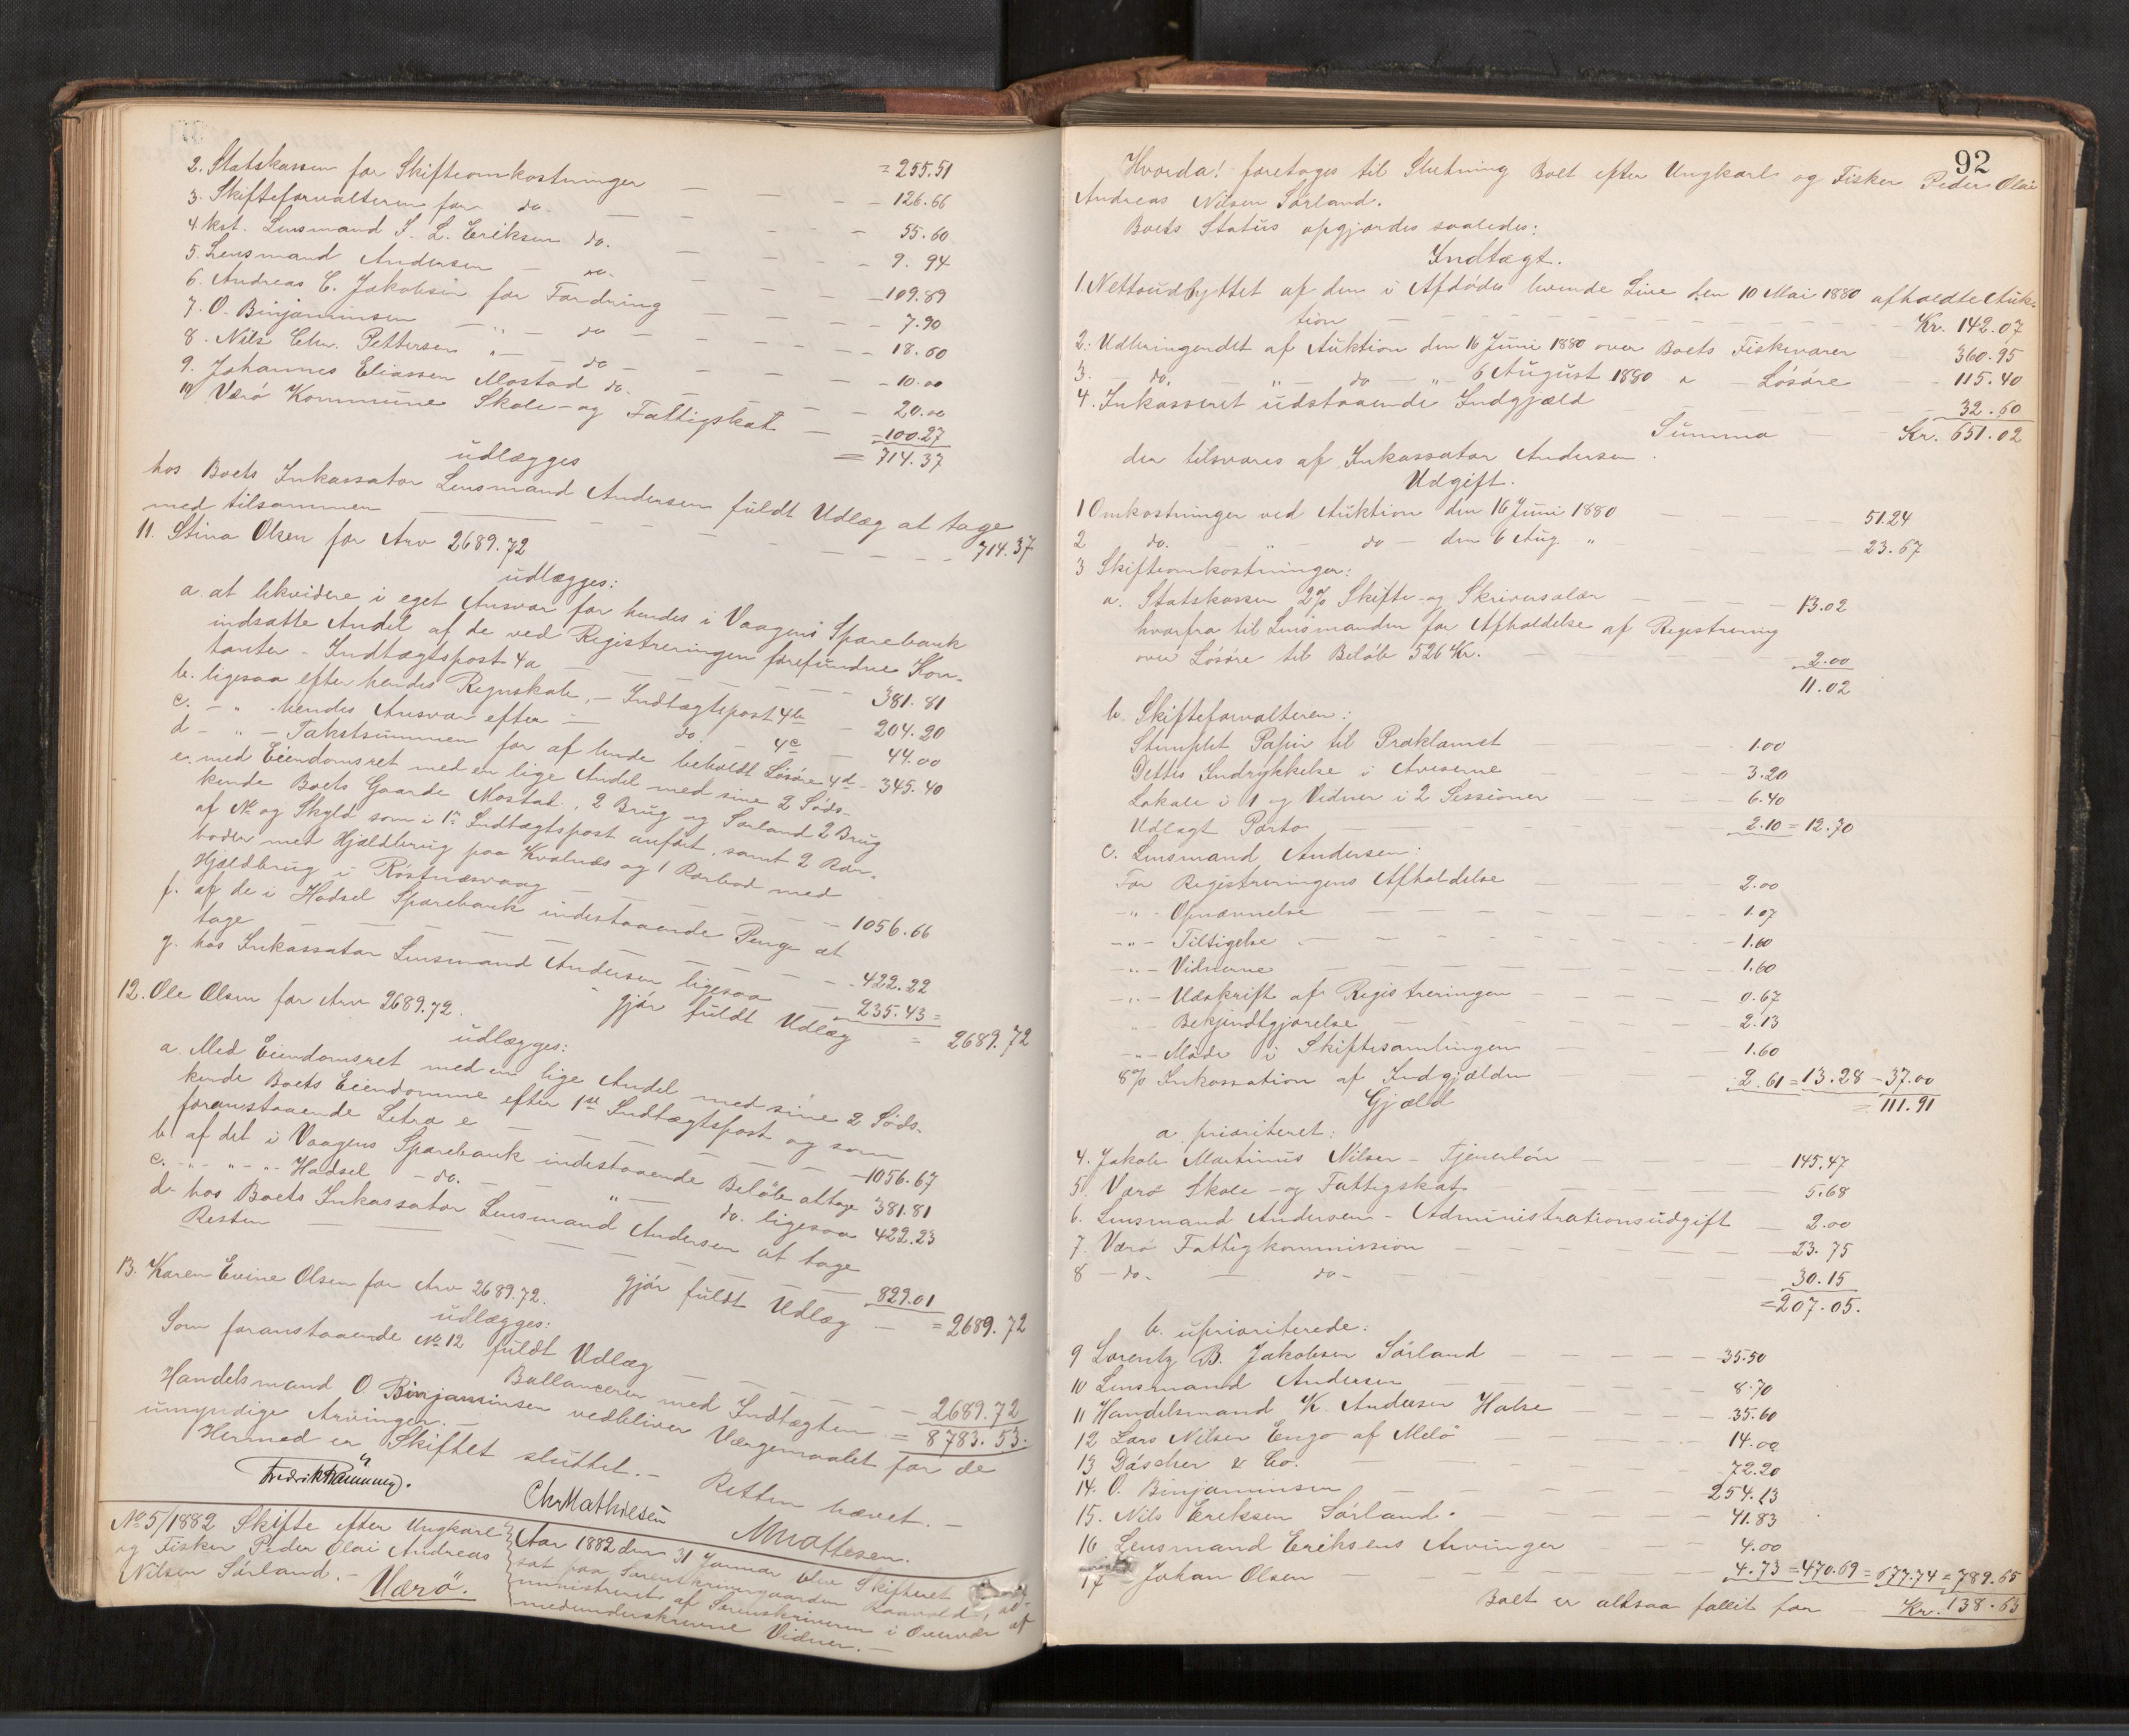 2. Statskassen for Skifteomkostninger — — — = 255.51
3. Skifteforvalteren for do. — — — 126.66
4. kst. Lensmand S. L. Eriksen do. — — 55.60
5. Lensmand Andersen — do. — — 9.94
6. Andreas C. Jakobsen for Fordring — — 109.89
7. O. Binjaminsen — " — do — — 7.90
8. Nils Chr. Pettersen " — do — — 18.60
9. Johannes Eliassen Mostad do. — — 10.00
10 Værö Kommune Skole- og Fattigskat — 20.00
— 100.27
udlægges = 714.37
hos Boets Inkassator Lensmand Andersen fuldt Udlæg at tage
med tilsammen — — — 714.37
11. Stina Olsen for Arv 2689.72
udlægges:
a. at likvidere i eget Ansvar for hendes i Vaagens Sparebank
indsatte Andel af de ved Registreringen forefundne Kon-
tanter - Indtægtspost 4a — — 381.81
b. ligesaa efter hendes Regnskab, - Indtægtspost 4b — 204.20
c. - " - hendes Ansvar efter — do. — 4c — 44.00
d - " - Takstsummen for af hende beholdt Lösöre 4d - 345.40
e. med Eiendomsret med en lige Andel med sine 2 Söds-
kende Boets Gaarde Mostad, 2 Brug og Sørland 2 Brug
af No og Skyld som i 1ste Indtægtspost anført, samt 2 Ror-
boder med Hjældbrug paa Kvalnæs og 1 Rorbod med
Hjældbrug i Röstnæsvaag — — — 1056.66
f. af de i Hadsel Sparebank indestaaende Penge at
tage — — — 422.22
g. hos Inkassator Lensmand Andersen ligesaa — 235.43 =
gjør fuldt Udlæg = 2689.72
12. Ole Olsen for Arv 2689.72.
udlægges:
a. Med Eiendomsret med en lige Andel med sine 2 Söds-
kende Boets Eiendomme efter 1ste Indtægtspost og som
foranstaaende Litra e — — — 1056.67
b. af det i Vaagens Sparebank indestaaende Belöb at tage 381.81
c. - " - " - " - Hadsel - do. — " — do. ligesaa 422.23
d. hos Boets Inkassator Lensmand Andersen at tage
Resten — — — 829.01
gjør fuldt Udlæg — = 2689.72
13. Karen Evine Olsen for Arv 2689.72.
udlægges:
Som foranstaaende No 12 fuldt Udlæg — — 2689.72
Ballancerer med Indtægten = 8783.53.
Handelsmand O. Binjaminsen vedbliver Værgemaalet for de
umyndige Arvinger. —
Hermed er Skiftet sluttet. — Retten hævet. —
Chr Mathiesen
No 5/1882 Skifte efter Ungkarl
og Fisker Peder Olai Andreas
Nilsen Sørland. —
Værö.
Aar 1882 den 31 Januar blev Skifteret
sat paa Sorenskrivergaarden ad-
ministreret af Sorenskriveren i Overvær af
medunderskrevne Vidner. —
92
Hvorda! foretoges til Slutning Boet efter Ungkarl og Fisker Peder Olai
Andreas Nilsen Sørland.
Boets Status opgjordes saaledes:
Indtægt.
1. Nettoudbyttet af den i Afdødes levende Live den 10 Mai 1880 afholdte Auk-
tion — — — Kr. 142.07
2. Udbringendet af Auktion den 16 Juni 1880 over Boets Fiskevarer 360.95
3. — do. — " — do — " — 6 August 1880 " — Lösöre — 115.40
4. Inkasseret udstaaende Indgjæld — 32.60
Summa — Kr. 651.02
der tilsvares af Inkassator Andersen.
Udgift.
1 Omkostninger ved Auktion den 16 Juni 1880 — — 51.24
2 do. — " — do — den 6 Aug. " — 23.67
3 Skifteomkostninger:
a. Statskassen 2% Skifte- og Skriversalær — — 13.02
hvorfra til Lensmanden for Afholdelse af Registrering
over Lösöre til Beløb 526 Kr. — — 2.00
11.02
b. Skifteforvalteren:
Stemplet Papir til Proklamet — — 1.00
Dettes Indrykkelse i Aviserne — — 3.20
Lokale i 1 og Vidner i 2 Sessioner — — 6.40
Udlagt Porto — — 2.10 = 12.70
c. Lensmand Andersen:
For Registreringens Afholdelse — — 2.00
- " - Opnævnelse — — 1.07
- " - Tilsigelse — — 1.60
- " - Vidnerne — — 1.60
- " - Udskrift af Registreringen — — 0.67
" - Bekjendtgjørelse — — 2.13
- " - Møde i Skiftesamlingen — — 1.60
8% Inkassation af Indgjælden — 2.61 = 13.28 - 37.00
= 111.91
Gjæld
a. prioriteret:
4. Jakob Martinus Nilsen - Tjenerløn — 145.47
5. Værö Skole- og Fattigskat — 5.68
6. Lensmand Andersen - Administrationsudgift — 2.00
7. Værö Fattigkommission — — 23.75
8 — do. — do — — 30.15
= 207.05.
b. uprioriterede:
9 Lorentz B. Jakobsen Sørland — — 35.50
10 Lensmand Andersen — — 8.70
11 Handelsmand K. Andersen Halse — — 35.60
12 Lars Nilsen Enge af Melö — — 14.00
13 Däscher & Co. — — 72.20
14. O. Binjaminsen — — 254.13
15. Nils Eriksen Sørland. — — 41.83
16 Lensmand Eriksens Arvinger — 4.00
17 Johan Olsen — — 4.73 = 470.69 = 677.74 = 789.65
Boet er altsaa fallit for — Kr. 138.63